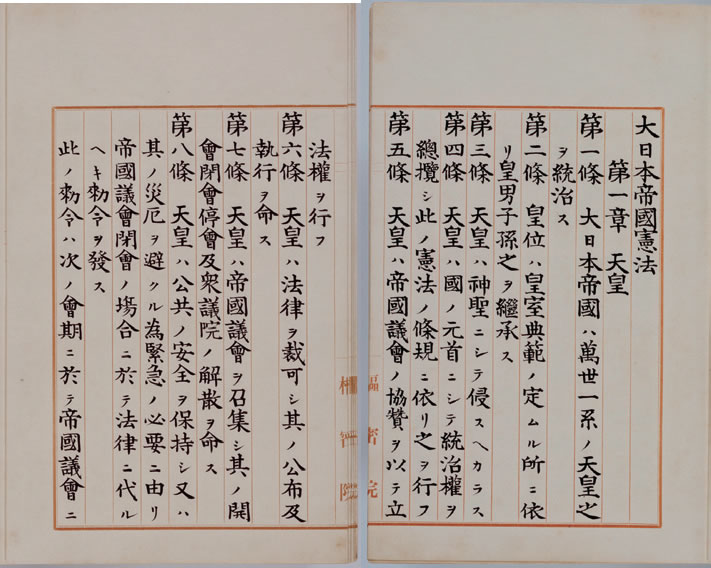 大日本帝國憲法
第一章 天皇
第一條 大日本帝國ハ萬世一系ノ天皇之
ヲ統治ス
第二條 皇位ハ皇室典範ノ定ムル所ニ依
リ皇男子孫之ヲ繼承ス
第三條 天皇ハ神聖ニシテ侵スヘカラス
第四條 天皇ハ國ノ元首ニシテ統治權ヲ
總攬シ此ノ憲法ノ條規ニ依リ之ヲ行フ
第五條 天皇ハ帝國議會ノ協贊ヲ以テ立
法權ヲ行フ
第六條 天皇ハ法律ヲ裁可シ其ノ公布及
執行ヲ命ス
第七條 天皇ハ帝國議會ヲ召集シ其ノ開
會閉會停會及衆議院ノ解散ヲ命ス
第八條 天皇ハ公共ノ安全ヲ保持シ又ハ
其ノ災厄ヲ避クル為緊急ノ必要ニ由リ
帝國議會閉會ノ場合ニ於テ法律ニ代ル
ヘキ勅令ヲ發ス
此ノ勅令ハ次ノ會期ニ於テ帝國議會ニ